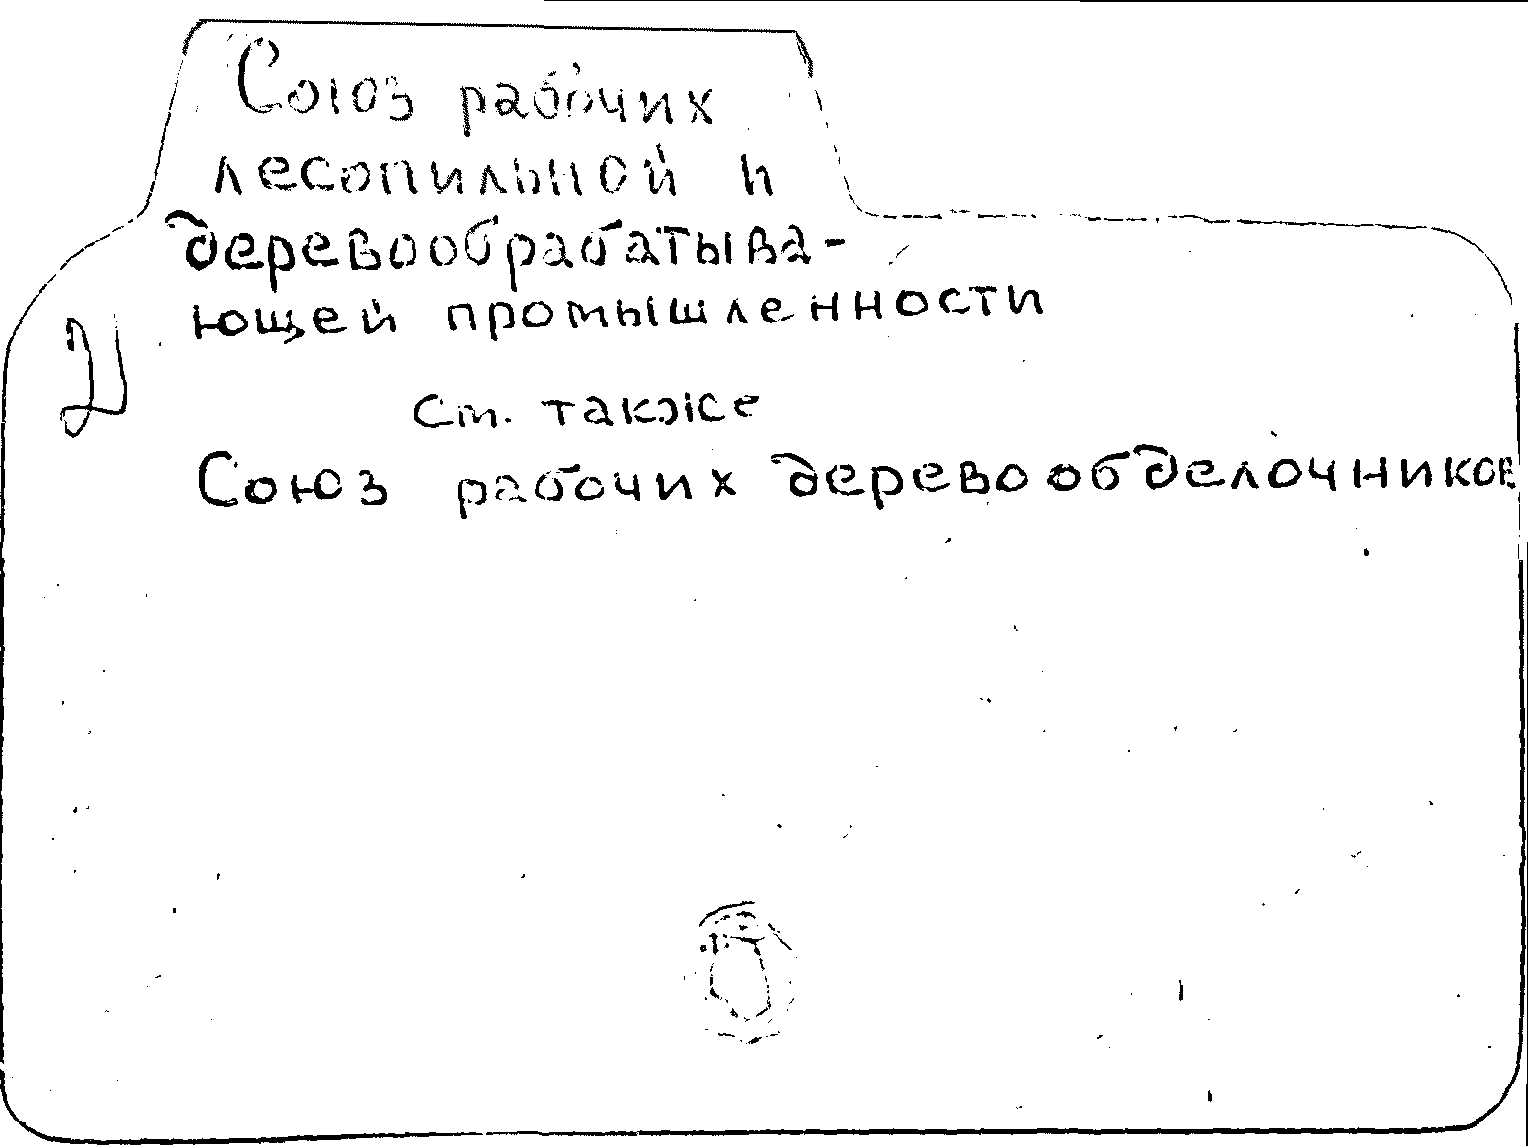 Союз рабочих
лесопильной и
деревообрабатыва-
ющей промышленности
См. также
Союз рабочих деревообделочников